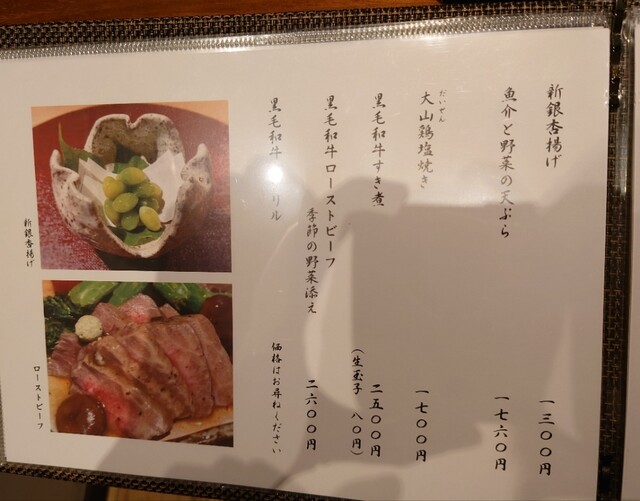 新銀杏揚げ 一三〇〇円
魚介と野菜の天ぷら 一七六〇円
だいせん
大山鶏塩焼き 一七〇〇円
黒毛和牛すき煮 二五〇〇円
（生玉子 八〇円）
黒毛和牛ローストビーフ
季節の野菜添え 二六〇〇円
黒毛和牛 リル 価格はお尋ねください
新銀杏揚げ
ローストビーフ